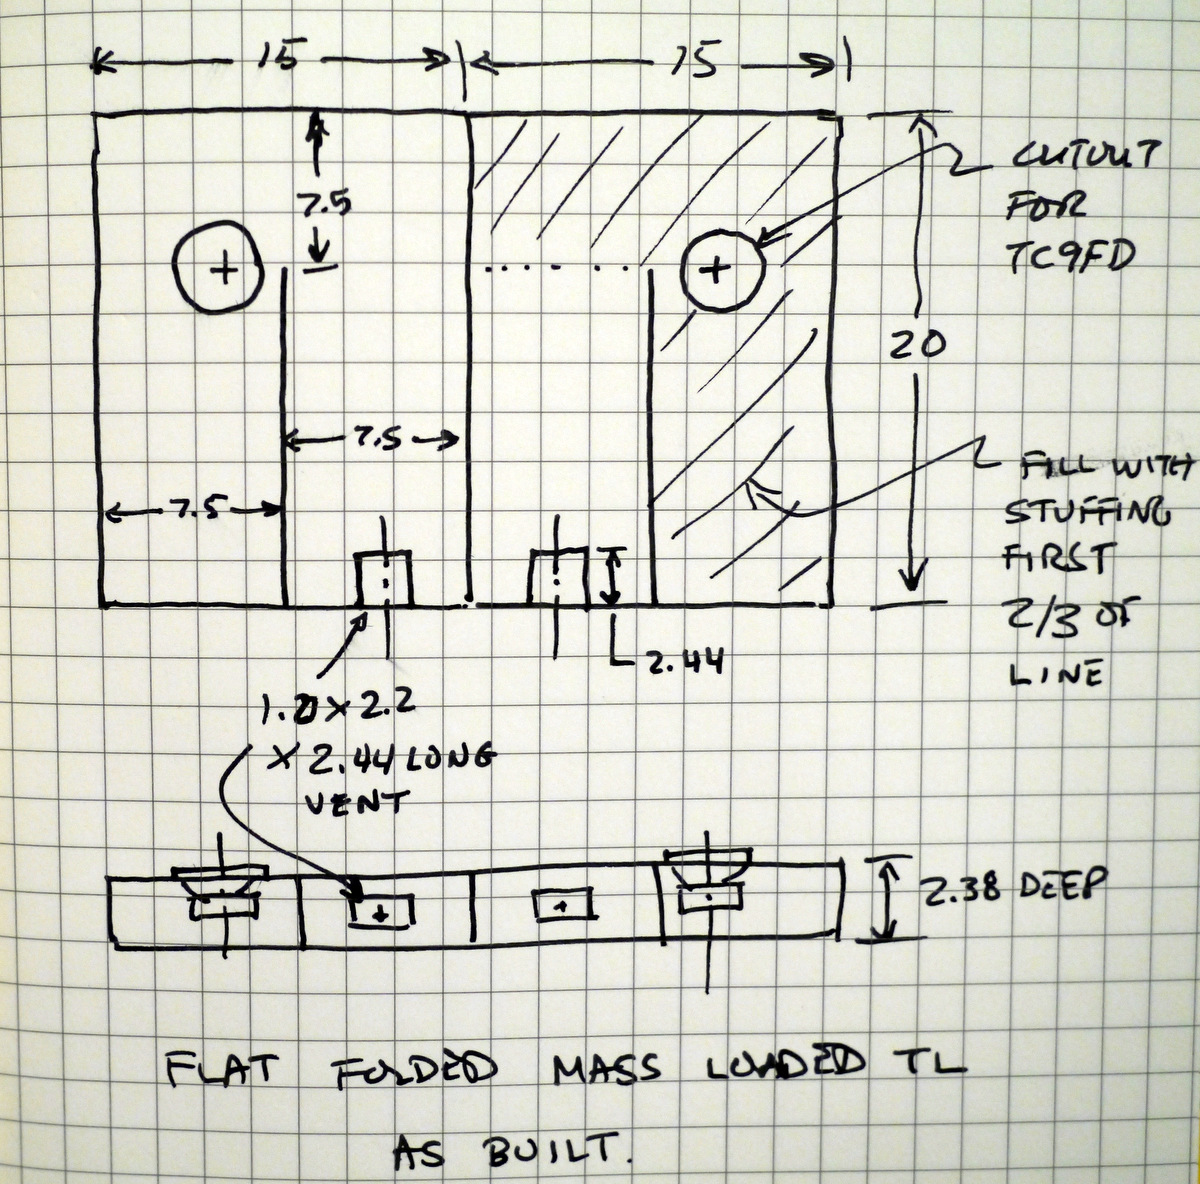 15
15
7.5
CUTOUT
FOR
TC9FD
20
7.5
7.5
FILL WITH
STUFFING
FIRST
2/3 OF
LINE
2.44
1.0 x 2.2
x 2.44 LONG
VENT
2.38 DEEP
FLAT FOLDED MASS LOADED TL
AS BUILT.